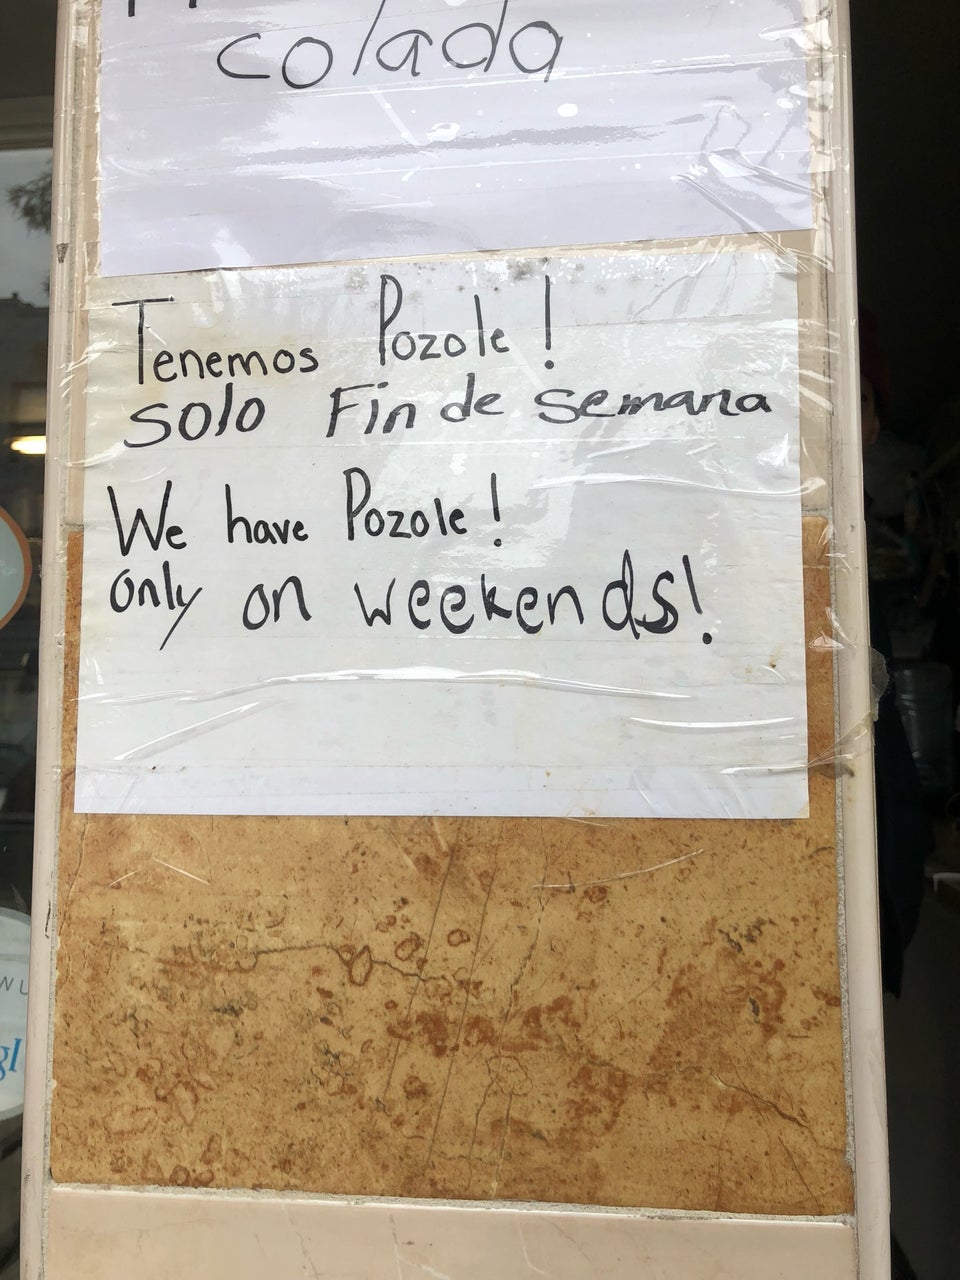 colada
Tenemos Pozole!
solo Fin de semana
We have Pozole!
only on weekends!